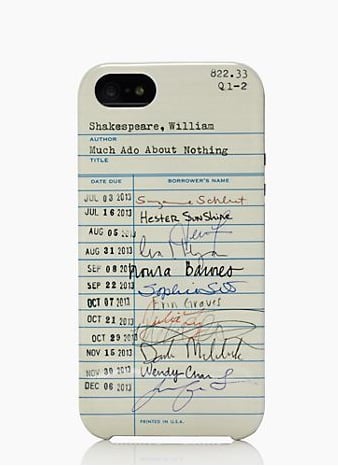 822.33
Q1-2
Shakespeare, William
AUTHOR
Much Ado About Nothing
TITLE
DATE DUE BORROWER'S NAME
JUL 03 2013 Suzanne Schlist
JUL 16 2013 HESTER SUNSHINE
AUG 05 2013
AUG 31 2013
SEP 08 2013 Barnes
SEP 22 2013 Sophia
OCT 07 2013 Erin Graves
OCT 21 2013 Julie
OCT 29 2013
NOV 15 2013
NOV 30 2013 Wendy Chan
DEC 06 2013
PRINTED IN U.S.A.